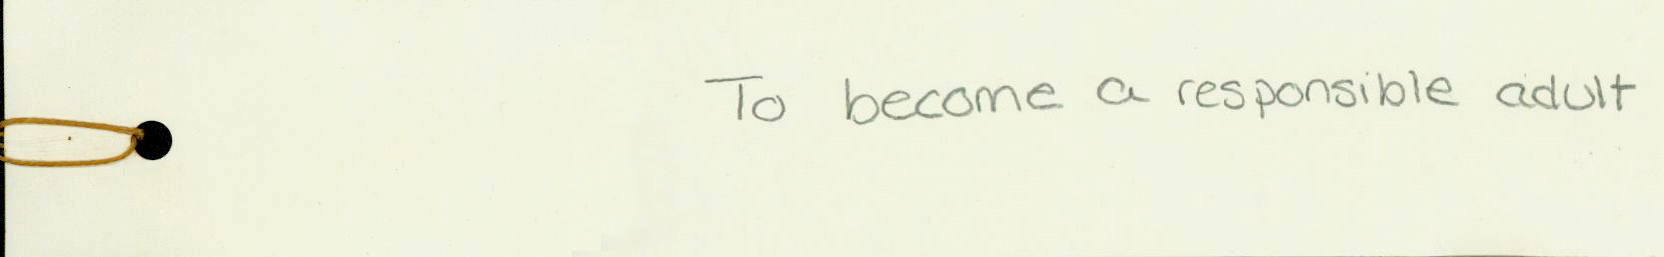 To become a responsible adult